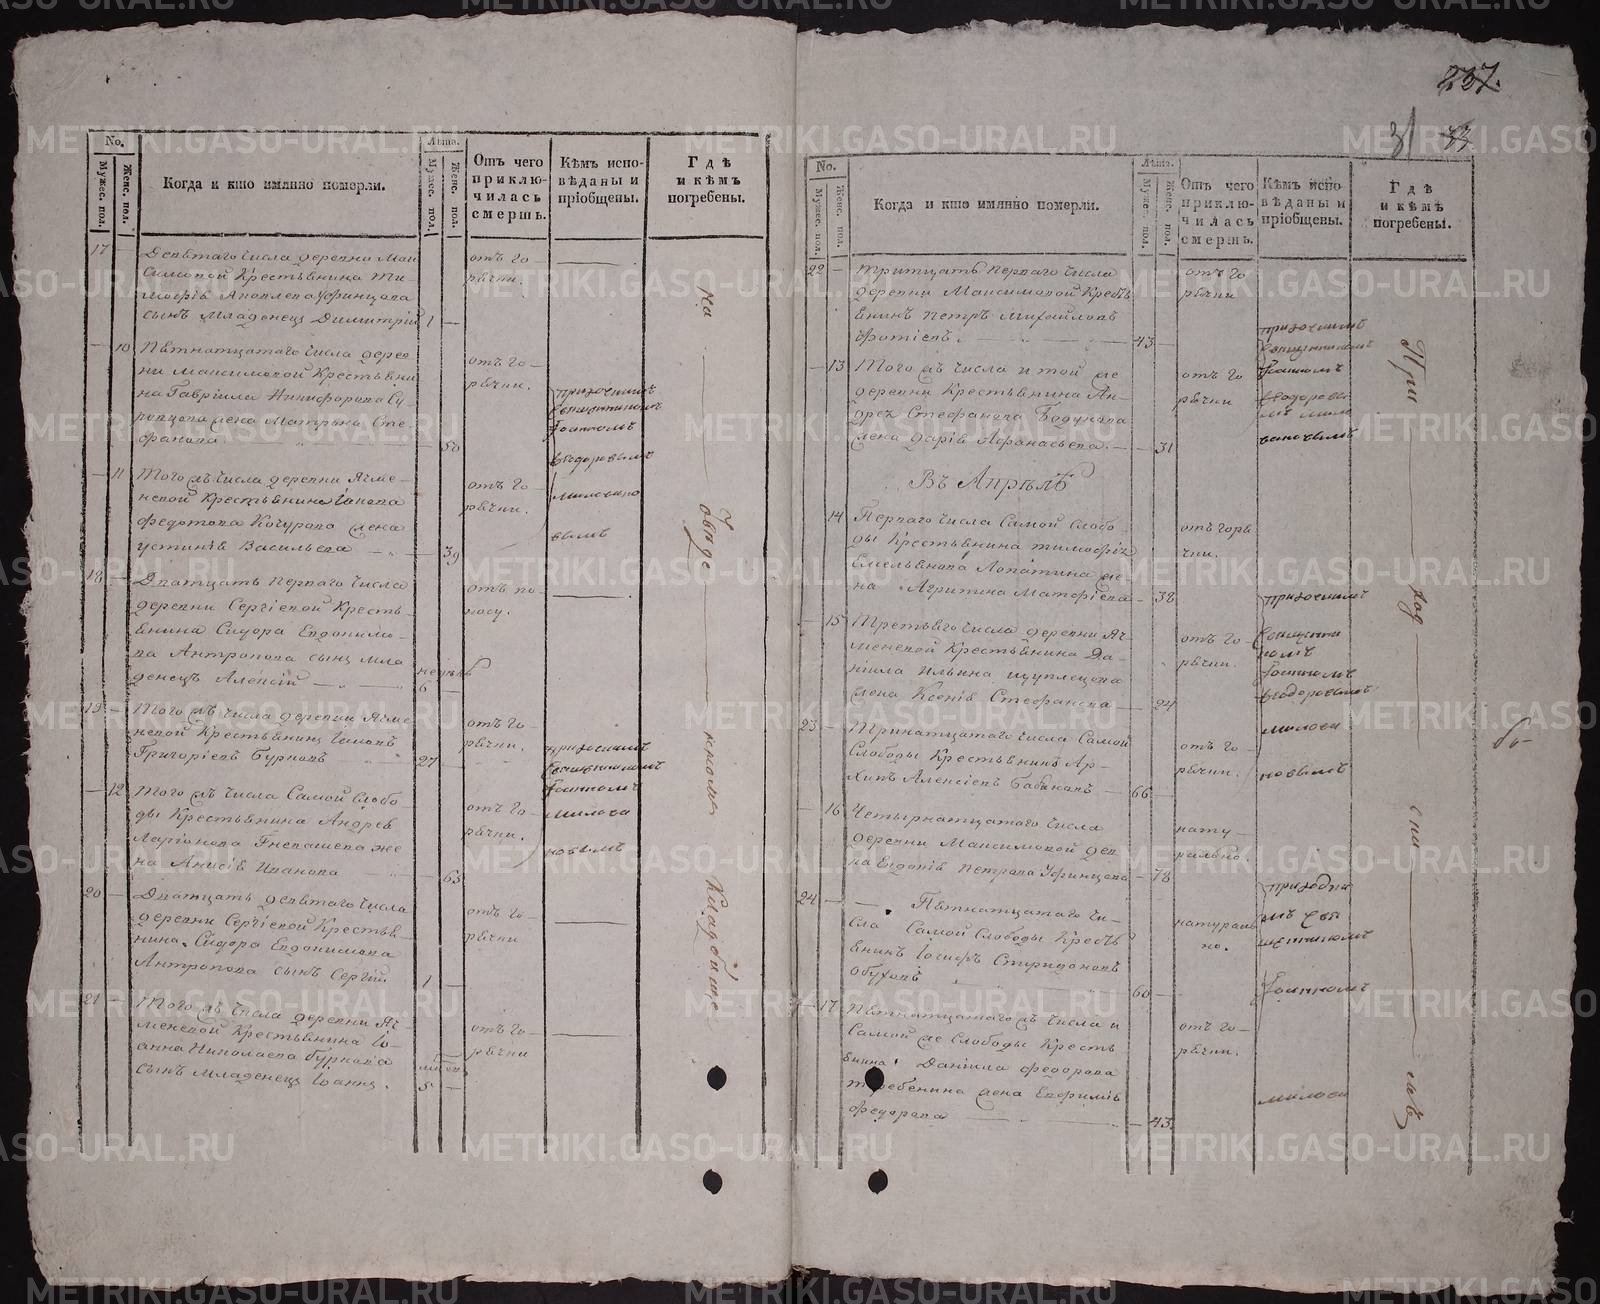 237.
31 33
No.
Мужес. пол.
Женс. пол.
Когда и кто имянно померли.
Лѣта.
Мужес. пол.
Женс. пол.
Отъ чего приклю-чилась смерть.
Кѣмъ испо-вѣданы и пріобщены.
Гдѣ и кѣмъ погребены.
17 — Девятаго числа деревни Мак
симовой Крестьянина Ти-
мофѣя Уфинцова
сынъ Младенецъ Димитрій 1 —
отъ го-
рячки.
— 10 Пятнатцатаго числа дерев
ни Максимовой Крестьяни
на Гавріила Никифорова Су-
жена Матрона Сте-
фанова 50
отъ го-
рячки.
приходскимъ
священникомъ
Іоанномъ
Ѳеодоровымъ
милован
вымъ
— 11 Того жъ числа деревни Ячме-
невой Крестьянина Іакова
Федотова Кочурова жена
Устинія Васильева — 39
отъ го-
рячки.
18 — Дватцать перваго числа
деревни Сергіевой Кресть-
янина Сидора Евдокимо-
ва Антропова сынъ мла
денецъ Алексій — недѣль
6 —
отъ по-
носу.
19 — Того жъ числа деревни Ячме
невой Крестьянинъ Іаковъ
Григоріевъ Бурковъ — 27 —
отъ го-
рячки.
приходскимъ
священникомъ
Іоанномъ
милова
новымъ
— 12 Того жъ числа Самой Слобо-
ды Крестьянина Андрея
Ларіонова же
на Анисія Иванова — 63
отъ го-
рячки.
20 — Дватцать девятаго числа
деревни Сергіевой Крестья-
нина Сидора Евдокимова
Антропова сынъ Сергій 1 —
отъ го-
рячки
21 — Того жъ числа деревни Яч-
меневой Крестьянина Іо-
анна Николаева Буркова
сынъ младенецъ Іоаннъ. 5 —
отъ го-
рячки
на обще кладбище
No.
Мужес. пол.
Женс. пол.
Когда и кто имянно померли.
Лѣта.
Мужес. пол.
Женс. пол.
Отъ чего приклю-чилась смерть.
Кѣмъ испо-вѣданы и пріобщены.
Гдѣ и кѣмъ погребены.
22 — Тритцать перваго числа
деревни Максимовой Кресть
янинъ Петръ Михайловъ
Фотіевъ. — 43 —
отъ го
рячки
приходскимъ
священникомъ
Іоанномъ
Ѳеодоровы
мъ мило
вановымъ
— 13 Того жъ числа и той же
деревни Крестьянина Ан-
дрея Стефанова
жена Дарія Афанасьева. — 31
отъ го
рячки
Въ Апрѣлѣ
14 Перваго числа Самой Слобо
ды Крестьянина Тимофѣя
Емельянова Лопатина же-
на Агрипина Матфіева — 38
отъ горя
чки.
приходскимъ
священни
комъ
Іоанномъ
Ѳеодоровымъ
милова
новымъ
— 15 Третьяго числа деревни Яч-
меневой Крестьянина Да-
ніила Ильина
жена Ксенія Стефанова — 24
отъ го-
рячки.
23 — Тринатцатаго числа Самой
Слободы Крестьянинъ Ар-
хипъ Алексіевъ Бабановъ — 66 —
отъ го-
рячки.
— 16 Четырнатцатаго числа
деревни Максимовой дев
ка Евдокія Петрова Уфинцова — 78
нату-
рально.
24 — Пятнатцатаго чи-
сла Самой Слободы Кресть
янинъ Іосифъ Спиридоновъ
Обуховъ 60 —
натураль
но.
приходски
мъ свя
щенникомъ
Іоанномъ
милова
17 Пятнатцатаго жъ числа и
Самой же Слободы Кресть
янина Даніила Федорова
жена Евфимія
Федорова — 43
отъ го-
рячки.
При ход